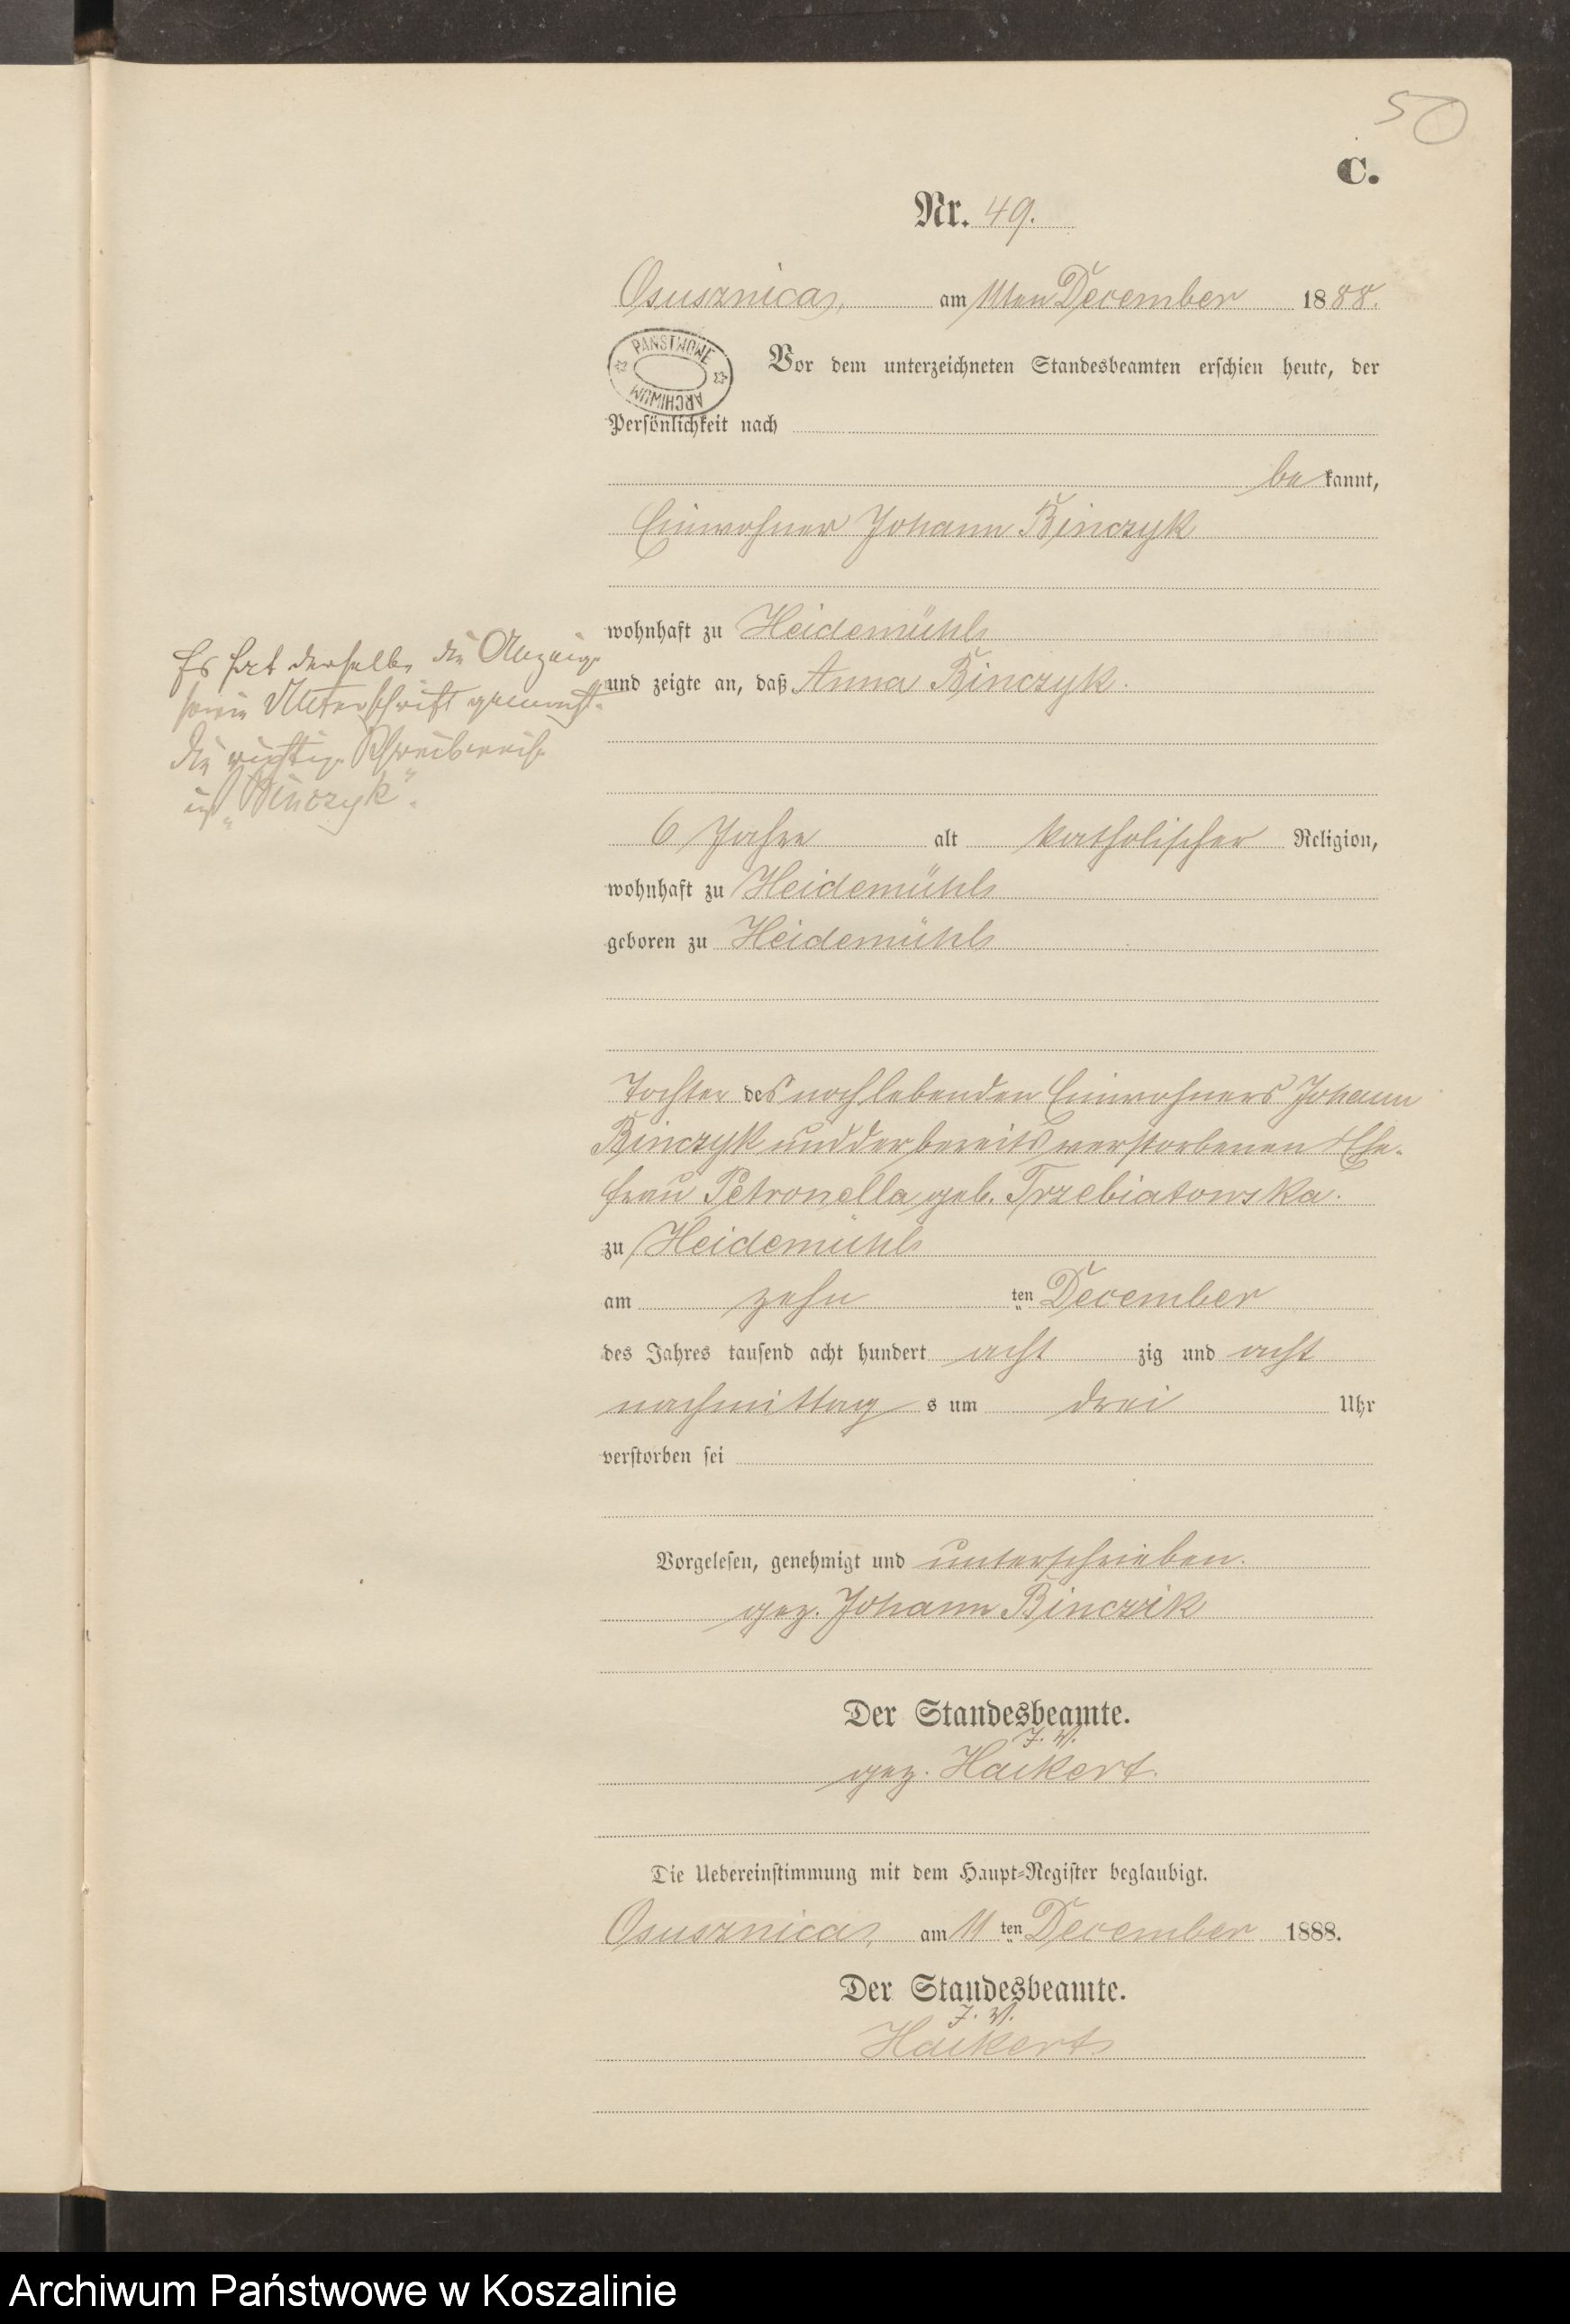 50
C.
Nr. 49.
Osusznica, am 11ten December 1888.
PAŃSTWOWE ARCHIWUM
Vor dem unterzeichneten Standesbeamten erschien heute, der
Persönlichkeit nach
be kannt,
Einwohner Johann Binczyk
wohnhaft zu Heidemühl
Es hat derselbe die Anzeige
und zeigte an, daß Anna Binczyk.
sowie Unterschrift gemacht.
Die richtige Schreibweise
ist „Binczyk".
6 Jahre alt katholischer Religion,
wohnhaft zu Heidemühl
geboren zu Heidemühl
Tochter des noch lebenden Einwohners Johann
Binczyk und der bereits verstorbenen Ehe-
frau Petronella geb. Trzebiatowska.
zu Heidemühl
am zehn ten December
des Jahres tausend acht hundert acht zig und acht
nachmittag s um drei Uhr
verstorben sei
Vorgelesen, genehmigt und unterschrieben.
gez. Johann Binczik
Der Standesbeamte.
J. V.
gez. Hackert.
Die Uebereinstimmung mit dem Haupt-Register beglaubigt.
Osusznica, am 11 ten December 1888.
Der Standesbeamte.
J. V.
Hackert
Archiwum Państwowe w Koszalinie